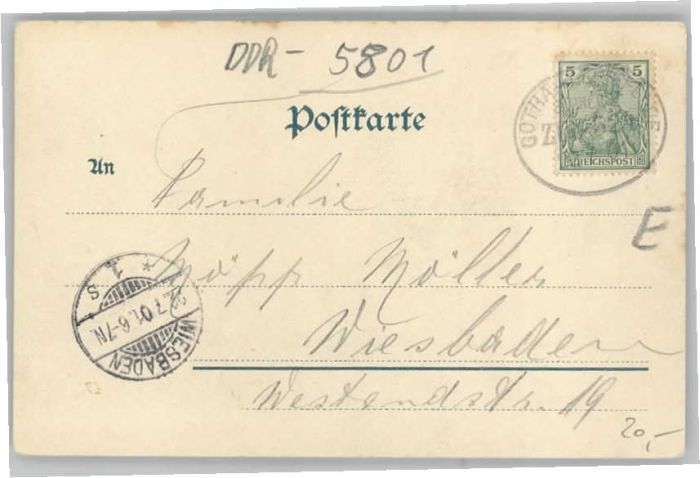 DDR - 5801
Postkarte
5 5
REICHSPOST
GOTHA
An
Familie
Möpp Möller
Wiesbaden
Westendstr. 19
WIESBADEN
22.7.01.6-7N.
* 1 S
E
20,-